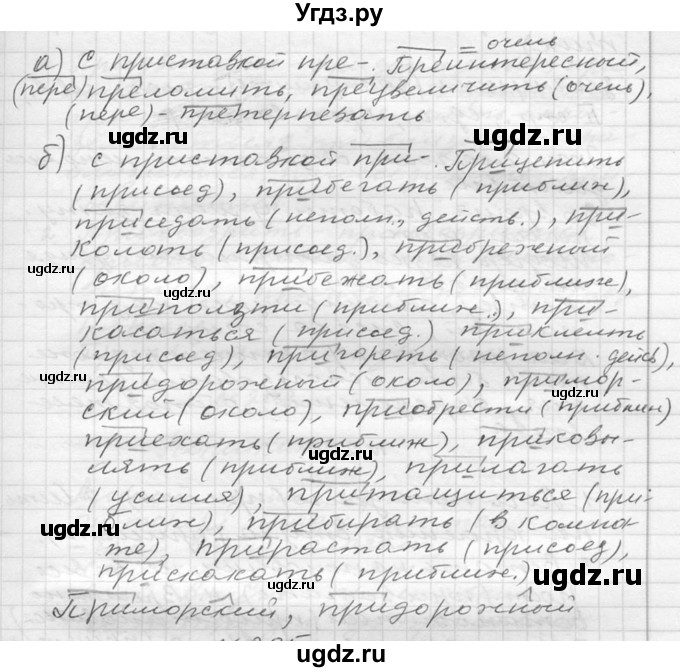 Угдз.ру
а) С приставкой пре-. Преинтересный,
очень
(пере) преломить, преувеличить (очень),
(пере) - претерпевать
ugdz.ru ugdz.ru
б) с приставкой при-. Прицепить
(присоед), прибегать (приближ),
приседать (неполн., действ.), при-
колоть (присоед.), прибрежный
ugdz.ru
(около), прибежать (приближ),
ugdz.ru
приползти (приближ.), при-
касаться (присоед.) приклеить
(присоед), пригореть (неполн. дейсв),
ugdz.ru
придорожный (около), примор-
ский (около), приобрести (приближ)
приехать (приближ), приковы-
лять (приближ), прилагать
ugdz.ru
(усилия), притащиться (при-
ugdz.ru
ближ), прибирать (в комна-
те), прирастать (присоед),
прискакать (приближ.)
ugdz.ru ugdz.ru
Приморский, придорожный
ugdz.ru